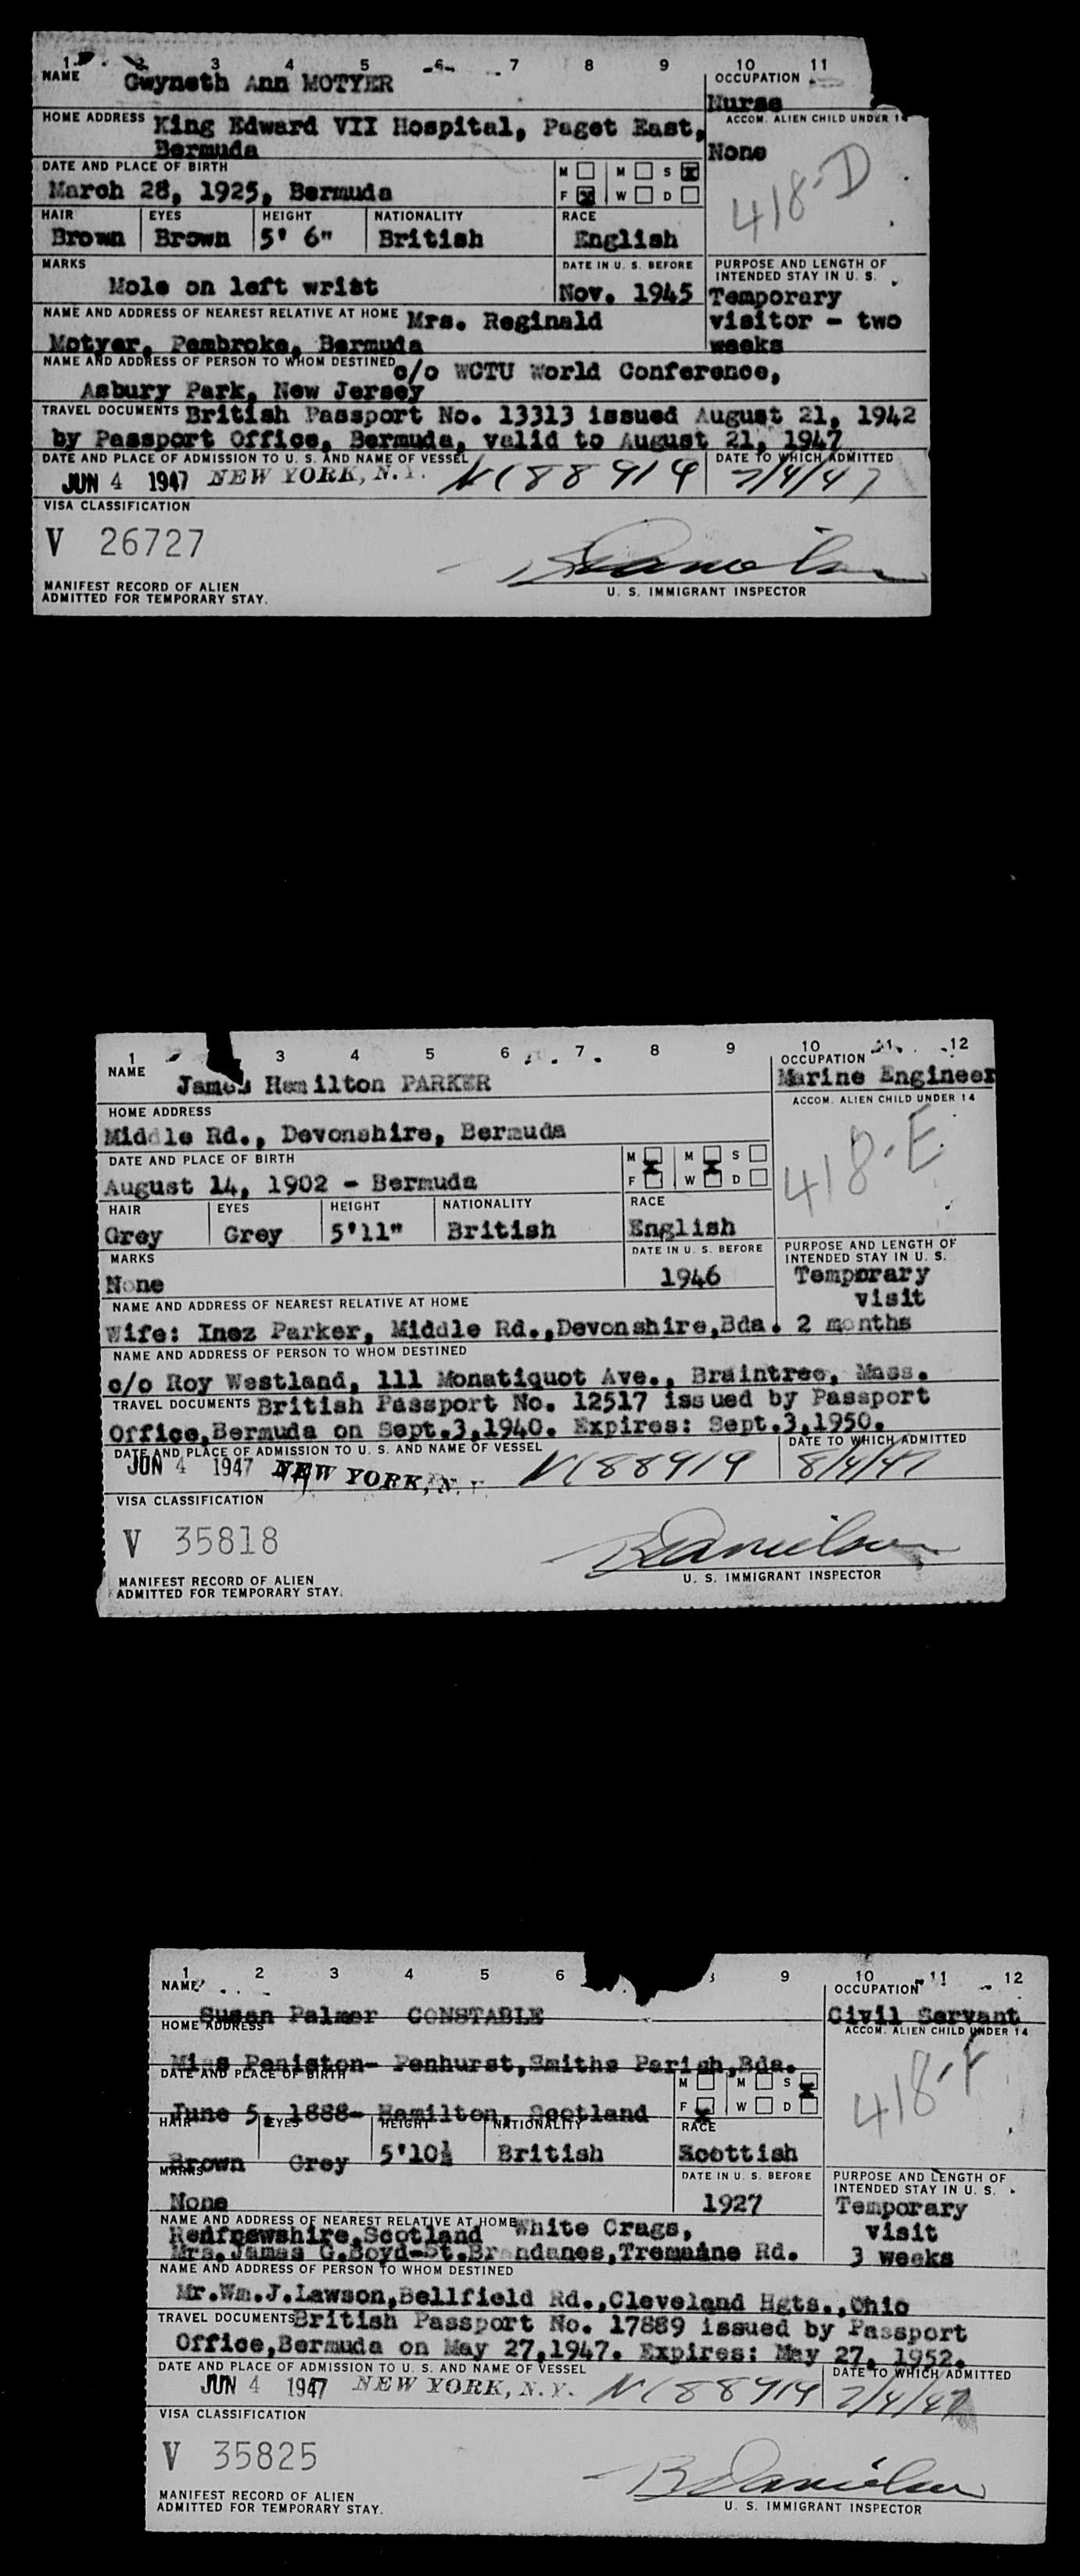 1 2 3 4 5 6 7 8 9 10 11
NAME Gwyneth Ann MOTYER
OCCUPATION
Nurse
HOME ADDRESS King Edward VII Hospital, Paget East,
Bermuda
ACCOM. ALIEN CHILD UNDER 14
None
418-D
DATE AND PLACE OF BIRTH
March 28, 1925, Bermuda
M M S x
F x W D
HAIR EYES HEIGHT NATIONALITY RACE
Brown Brown 5' 6" British English
MARKS
Mole on left wrist
DATE IN U. S. BEFORE
Nov. 1945
PURPOSE AND LENGTH OF
INTENDED STAY IN U. S.
Temporary
visitor - two
weeks
NAME AND ADDRESS OF NEAREST RELATIVE AT HOME Mrs. Reginald
Motyer, Pembroke, Bermuda
NAME AND ADDRESS OF PERSON TO WHOM DESTINED c/o WCTU World Conference,
Asbury Park, New Jersey
TRAVEL DOCUMENTS British Passport No. 13313 issued August 21, 1942
by Passport Office, Bermuda, valid to August 21, 1947
DATE AND PLACE OF ADMISSION TO U. S. AND NAME OF VESSEL
DATE TO WHICH ADMITTED
JUN 4 1947 NEW YORK, N.Y. NC88919 7/4/47
VISA CLASSIFICATION
V 26727
MANIFEST RECORD OF ALIEN
ADMITTED FOR TEMPORARY STAY.
U. S. IMMIGRANT INSPECTOR
1 3 4 5 6 7 8 9 10 11 12
NAME James Hamilton PARKER
OCCUPATION
Marine Engineer
HOME ADDRESS
Middle Rd., Devonshire, Bermuda
ACCOM. ALIEN CHILD UNDER 14
418-E
DATE AND PLACE OF BIRTH
August 14, 1902 - Bermuda
M x M x S
F W D
HAIR EYES HEIGHT NATIONALITY RACE
Grey Grey 5'11" British English
MARKS
None
DATE IN U. S. BEFORE
1946
PURPOSE AND LENGTH OF
INTENDED STAY IN U. S.
Temporary
visit
2 months
NAME AND ADDRESS OF NEAREST RELATIVE AT HOME
Wife: Inez Parker, Middle Rd.,Devonshire,Bda.
NAME AND ADDRESS OF PERSON TO WHOM DESTINED
c/o Roy Westland, 111 Monatiquot Ave., Braintree, Mass.
TRAVEL DOCUMENTS British Passport No. 12517 issued by Passport
Office,Bermuda on Sept.3,1940. Expires: Sept.3,1950.
DATE AND PLACE OF ADMISSION TO U. S. AND NAME OF VESSEL
DATE TO WHICH ADMITTED
JUN 4 1947 NEW YORK, N.Y. NC88919 8/4/47
VISA CLASSIFICATION
V 35818
MANIFEST RECORD OF ALIEN
ADMITTED FOR TEMPORARY STAY.
B Danielson
U. S. IMMIGRANT INSPECTOR
1 2 3 4 5 6 9 10 11 12
NAME
Susan Palmer CONSTABLE
OCCUPATION
Civil Servant
HOME ADDRESS
Miss Peniston- Penhurst,Smiths Parish,Bda.
ACCOM. ALIEN CHILD UNDER 14
418-F
DATE AND PLACE OF BIRTH
June 5, 1888- Hamilton, Scotland
M M S x
F x W D
HAIR EYES HEIGHT NATIONALITY RACE
Brown Grey 5'10½ British Scottish
MARKS
None
DATE IN U. S. BEFORE
1927
PURPOSE AND LENGTH OF
INTENDED STAY IN U. S.
Temporary
visit
3 weeks
NAME AND ADDRESS OF NEAREST RELATIVE AT HOME White Crags,
Renfrewshire,Scotland
Mrs.James G.Boyd-St.Brandanes,Tremaine Rd.
NAME AND ADDRESS OF PERSON TO WHOM DESTINED
Mr.Wm.J.Lawson,Bellfield Rd.,Cleveland Hgts.,Ohio
TRAVEL DOCUMENTS British Passport No. 17889 issued by Passport
Office,Bermuda on May 27,1947. Expires: May 27, 1952.
DATE AND PLACE OF ADMISSION TO U. S. AND NAME OF VESSEL
DATE TO WHICH ADMITTED
JUN 4 1947 NEW YORK, N.Y. NC88919 7/4/47
VISA CLASSIFICATION
V 35825
MANIFEST RECORD OF ALIEN
ADMITTED FOR TEMPORARY STAY.
B Danielson
U. S. IMMIGRANT INSPECTOR